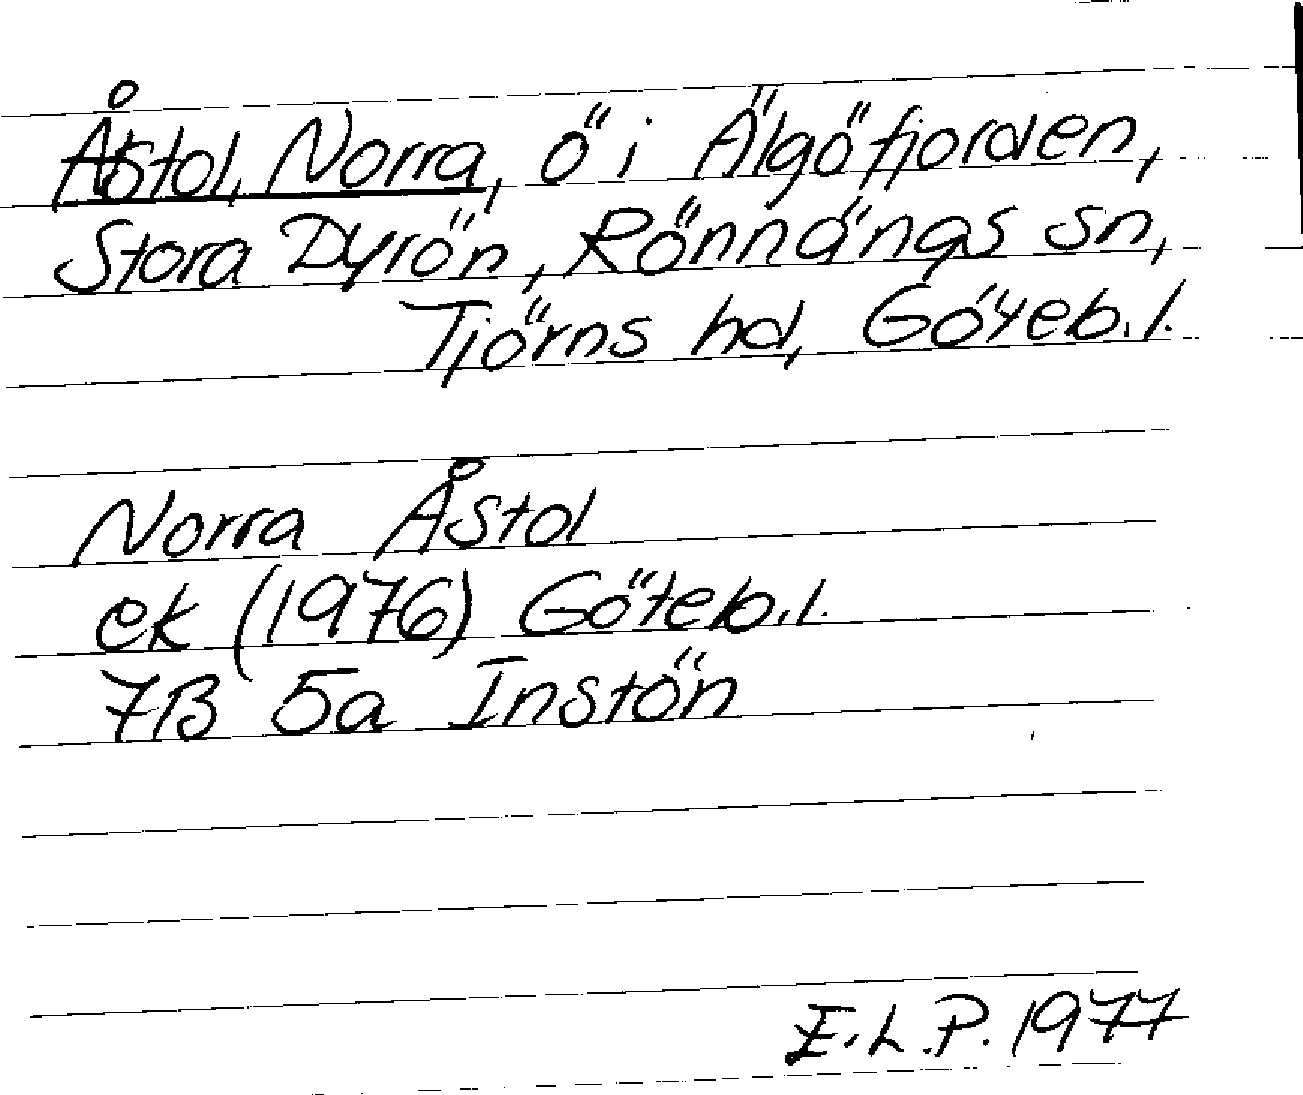 Åstol, Norra, ö i Älgöfjorden,
Stora Dyrön, Rönnängs sn,
Tjörns hd, Göteb.l.
Norra Åstol
ek (1976) Göteb.l.
7B 5a Instön
E.L.P. 1977